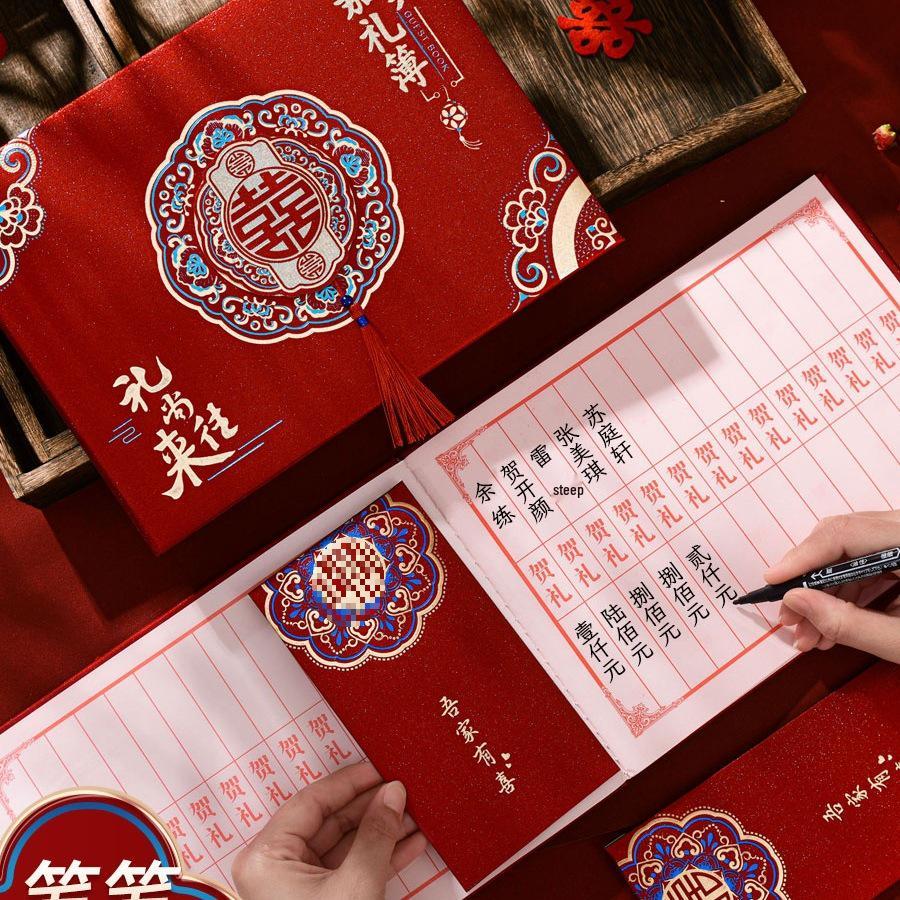 礼簿
GUEST BOOK
囍
礼尚往来
苏庭轩
张美琪
雷
贺开颜
余练
steep
贺礼 贺礼 贺礼 贺礼 贺礼 贺礼 贺礼 贺礼 贺礼 贺礼 贺礼 贺礼 贺礼
贰仟元
捌佰元
捌佰元
陆佰元
壹仟元
吾家有喜
贺礼 贺礼 贺礼 贺礼 贺礼 贺礼
吾家有
笔笔